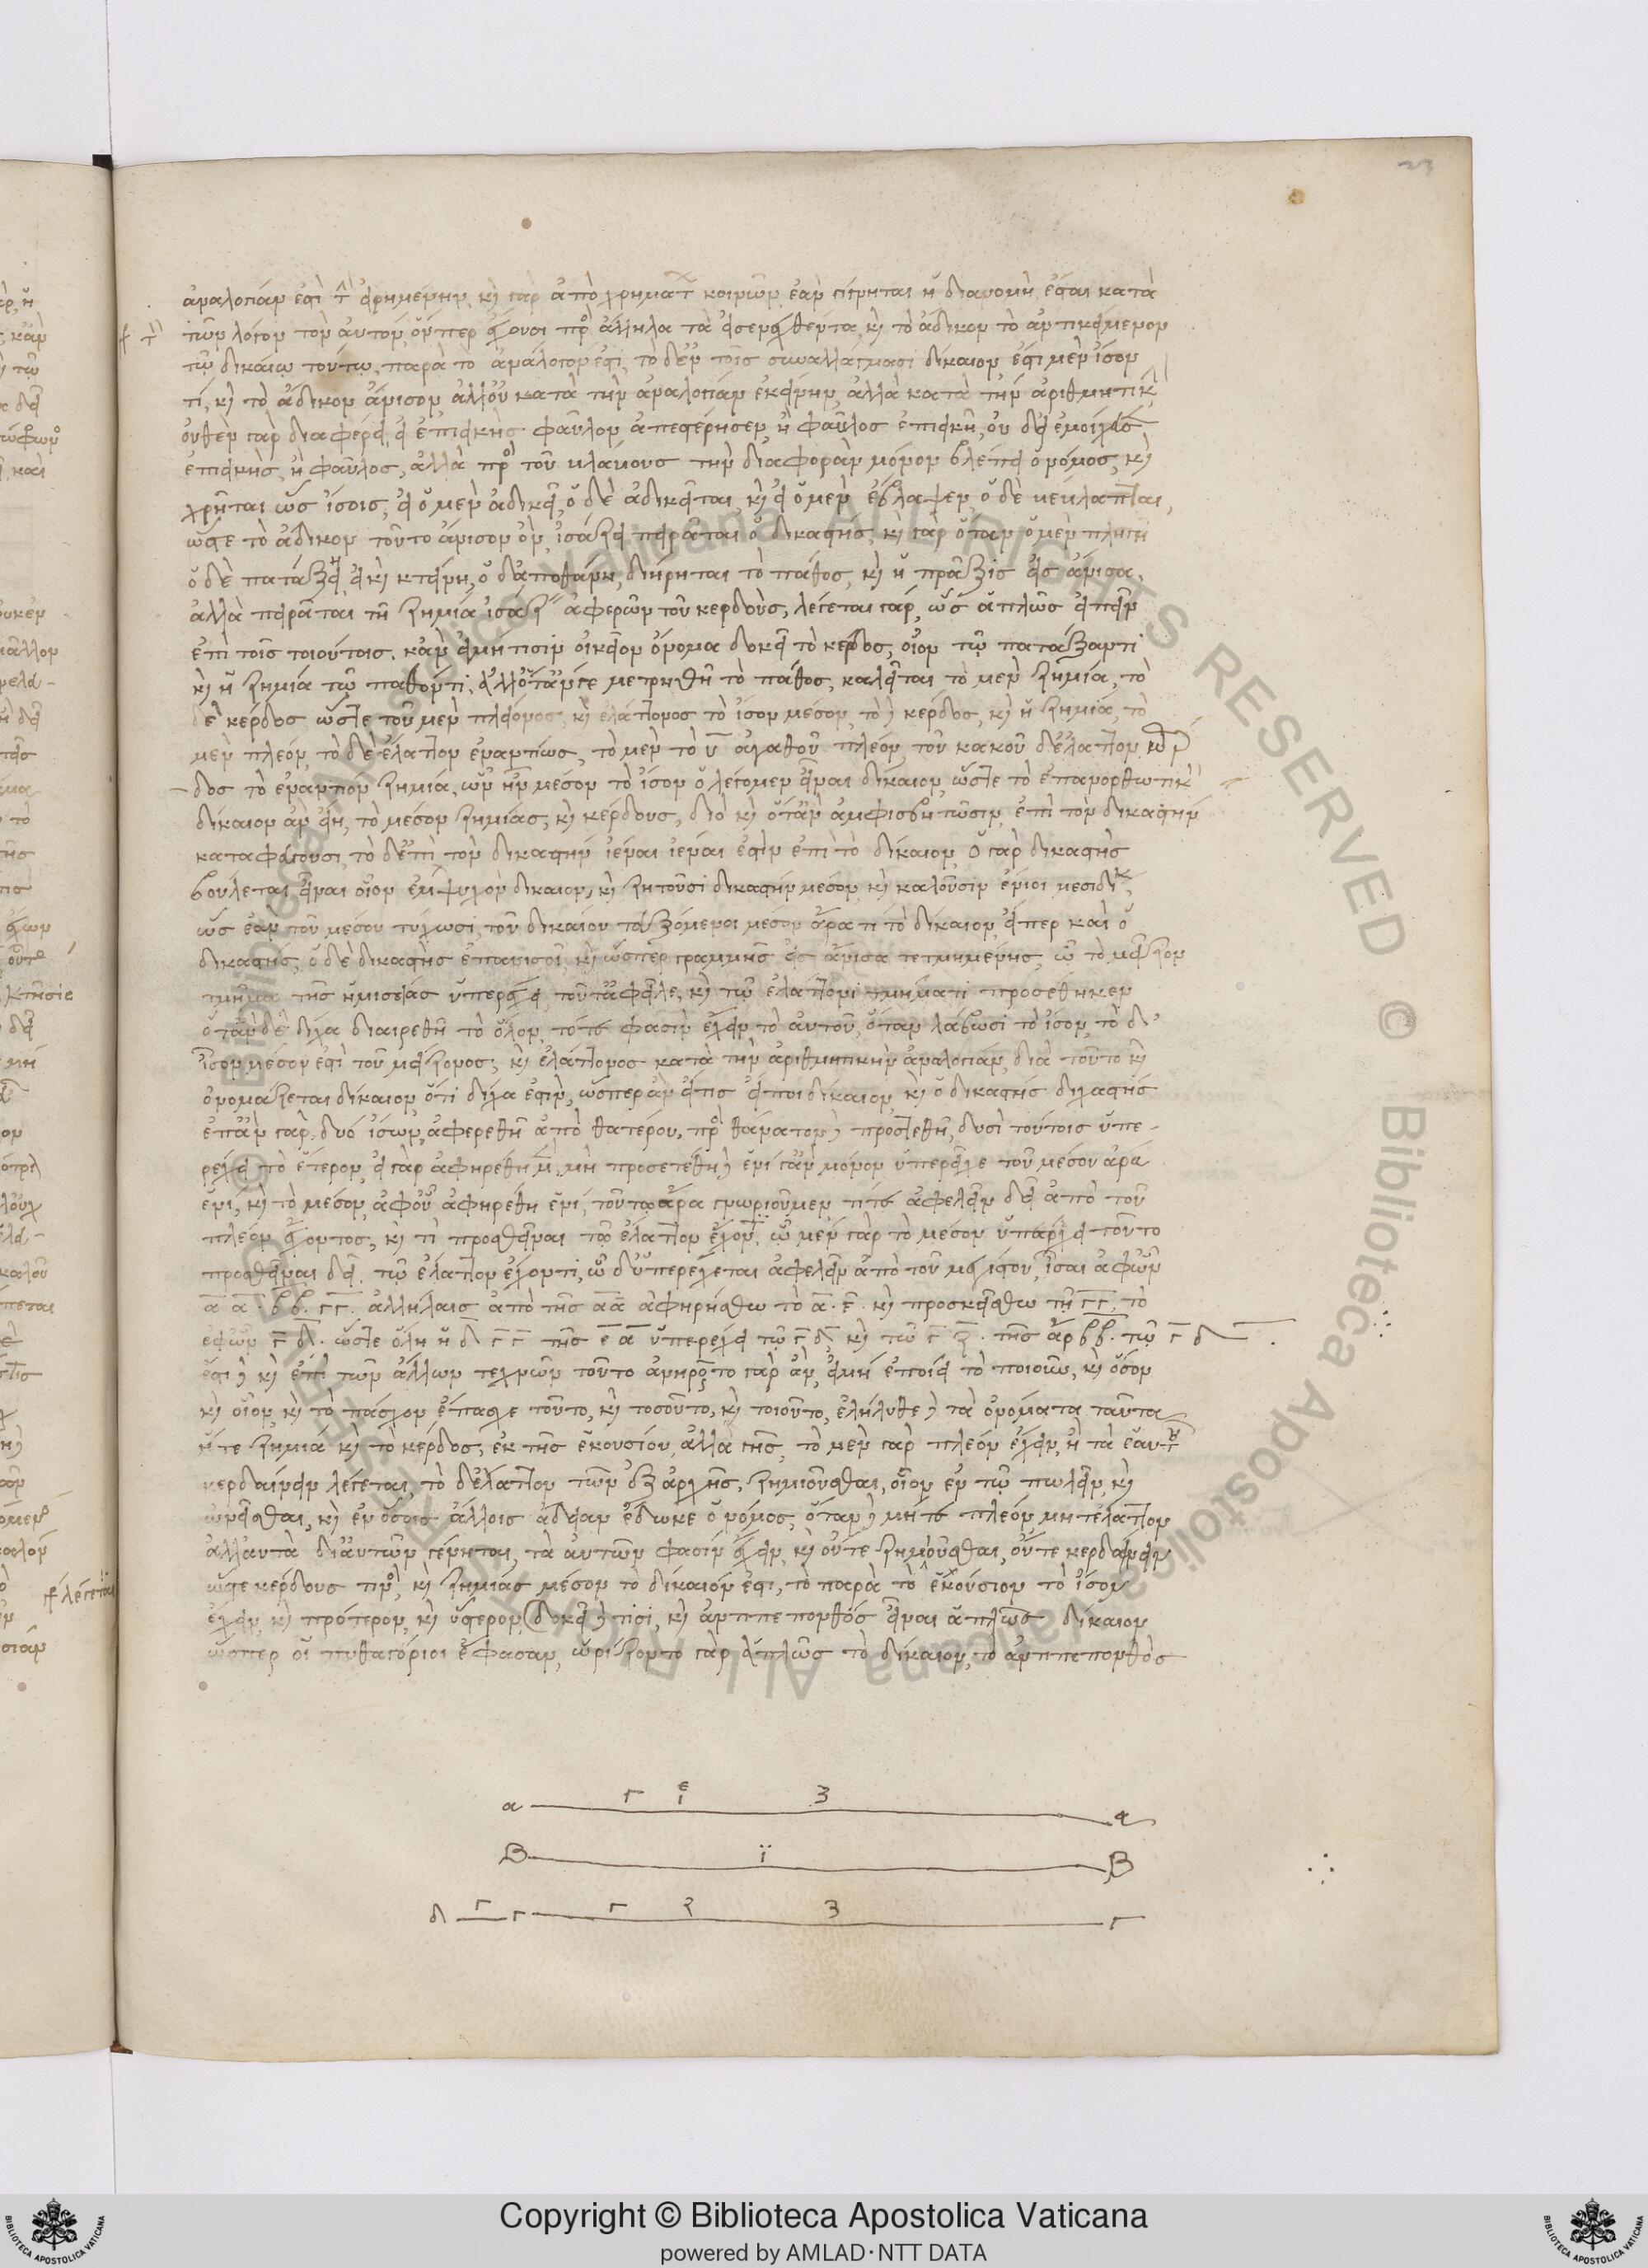 ἀναλογίαν ἐστὶ τὴν εἰρημένην, κὶ γὰρ ἀπὸ χρημάτων κοινῶν ἐὰν γίγνηται ἡ διανομὴ ἔσται κατὰ
τῶν λόγον τὸν αὐτὸν ὅνπερ ἔχουσι πρὸς ἄλληλα τὰ εἰσενεχθέντα, κὶ τὸ ἄδικον τὸ ἀντικείμενον
τῷ δικαίῳ τούτῳ, παρὰ τὸ ἀνάλογόν ἐστι, τὸ δ' ἐν τοῖς συναλλάγμασι δίκαιον, ἐστὶ μὲν ἴσον
τί, κὶ τὸ ἄδικον ἄνισον ἀλλ' οὐ κατὰ τὴν ἀναλογίαν ἐκείνην, ἀλλὰ κατὰ τὴν ἀριθμητικήν
οὐθὲν γὰρ διαφέρει, εἰ ἐπιεικὴς φαῦλον ἀπεστέρησεν, ἢ φαῦλος ἐπιεικῆ, οὐδ' εἰ ἐμοίχευσεν
ἐπιεικὴς, ἢ φαῦλος, ἀλλὰ πρὸς τοῦ βλάβους τὴν διαφορὰν μόνον βλέπει ὁ νόμος, κὶ
χρῆται ὡς ἴσοις, εἰ ὁ μὲν ἀδικεῖ, ὁ δὲ ἀδικεῖται, κὶ εἰ ὁ μὲν ἔβλαψεν, ὁ δὲ βέβλαπται,
ὥστε τὸ ἄδικον τοῦτο ἄνισον ὂν, ἰσάζειν πειρᾶται ὁ δικαστής, κὶ γὰρ ὅταν ὁ μὲν πληγῇ
ὁ δὲ πατάξῃ, εἰ κὶ κτείνῃ, ὁ δ' ἀποθάνῃ, διῄρηται τὸ πάθος, κὶ ἡ πρᾶξις εἰς ἄνισα,
ἀλλὰ πειρᾶται τῇ ζημίᾳ ἰσάζειν ἀφερῶν τοῦ κέρδους, λέγεται γάρ, ὡς ἁπλῶς εἰπεῖν
ἐπὶ τοῖς τοιούτοις. κἂν εἰ μή τισιν οἰκεῖον ὄνομα δοκεῖ τὸ κέρδος, οἷον τῷ πατάξαντι
κὶ ἡ ζημία τῷ παθόντι, ἀλλ' ὅτάν γε μετρηθῇ τὸ πάθος, καλεῖται τὸ μὲν ζημία, τὸ
δὲ κέρδος ὥστε τοῦ μὲν πλείονος, κὶ ἐλάττονος τὸ ἴσον μέσον, τὸ δὲ κέρδος, κὶ ἡ ζημία, τὸ
μὲν πλέον, τὸ δὲ ἔλαττον ἐναντίως, τὸ μὲν τὸ ῦ ἀγαθοῦ πλέον τοῦ κακοῦ δ' ἔλαττον κέρ
δος τὸ ἐναντίον ζημία, ὧν ἦν μέσον τὸ ἴσον ὃ λέγομεν εἶναι δίκαιον, ὥστε τὸ ἐπανορθωτικὸν
δίκαιον ἂν εἴη, τὸ μέσον ζημίας, κὶ κέρδους, διὸ κὶ ὅτἂν ἀμφισβητῶσιν ἐπὶ τὸν δικαστὴν
καταφεύγουσι, τὸ δ' ἐπὶ τὸν δικαστὴν ἰέναι ἰέναι ἐστὶν ἐπὶ τὸ δίκαιον, ὁ γὰρ δικαστὴς
βούλεται εἶναι οἷον ἔμψυχον δίκαιον, κὶ ζητοῦσι δικαστὴν μέσον, κὶ καλοῦσιν ἔνιοι μεσιδίκ
ὡς ἐὰν τοῦ μέσου τύχωσι, τοῦ δικαίου τευξόμενοι μέσον ἄρα τι τὸ δίκαιον, εἴπερ καὶ ὁ
δικαστής, ὁ δὲ δικαστὴς ἐπανισοῖ, κὶ ὥσπερ γραμμῆς εἰς ἄνισα τετμημένης, ᾧ τὸ μεῖζον
τμῆμα τῆς ἡμισείας ὑπερέχει, τοῦτ' ἀφεῖλε, κὶ τῷ ἐλάττονι τμήματι προσέθηκεν
ὅτἂν δὲ δίχα διαιρεθῇ τὸ ὅλον, τότε φασὶν ἔχειν τὸ αὐτοῦ, ὅταν λάβωσι τὸ ἴσον, τὸ δ'
ἴσον μέσον ἐστὶ τοῦ μείζονος, κὶ ἐλάττονος κατὰ τὴν ἀριθμητικὴν ἀναλογίαν, διὰ τοῦτο κὶ
ὀνομάζεται δίκαιον, ὅτι δίχα ἐστὶν, ὥσπερ ἂν εἴ τις εἴποι δίχαιον, κὶ ὁ δικαστὴς διχαστής
ἐπἂν γὰρ, δύο ἴσων, ἀφερεθῇ ἀπὸ θατέρου, πρὸς θάνατον δὲ προστεθῇ, δυσὶ τούτοις ὑπε-
ρέχει τὸ ἕτερον, εἰ γὰρ ἀφηρέθη μὲν, μὴ προσετέθη δὲ ἑνὶ γἂν μόνον ὑπερεῖχε τοῦ μέσου ἄρα
ἑνί, κὶ τὸ μέσον, ἀφ' οὗ ἀφηρέθη ἑνί, τούτῳ ἄρα γνωριοῦμεν τί τε ἀφελεῖν δεῖ ἀπὸ τοῦ
πλέον ἔχοντος, κὶ τί προσθεῖναι τῷ ἔλαττον ἔχοντι, ᾧ μὲν γὰρ τὸ μέσον ὑπερέχει τοῦτο
προσθεῖναι δεῖ τῷ ἔλαττον ἔχοντι, ᾧ δ' ὑπερέχεται ἀφελεῖν ἀπὸ τοῦ μεγίστου, ἴσαι ἀφ' ὧν
α α. ββ. γγ. ἀλλήλαις ἀπὸ τῆς αα ἀφῃρήσθω τὸ α. ε. κὶ προσκείσθω τῇ γγ, τὸ
ἐφ' ὧν γ δ. ὥστε ὅλη ἡ δ γ γ τῆς ε α ὑπερέχει τῷ γ δ κὶ τῷ γ ζ. τῆς ἄρ ββ. τῷ γ δ
ἔστι δὲ κὶ ἐπὶ τῶν ἄλλων τεχνῶν τοῦτο ἀνῃροῦντο γὰρ ἂν, εἰ μὴ ἐποίει τὸ ποιοῦν, κὶ ὅσον
κὶ οἷον, κὶ τὸ πάσχον ἔπασχε τοῦτο, κὶ τοσοῦτο, κὶ τοιοῦτο, ἐλήλυθε δὲ τὰ ὀνόματα ταῦτα
ἥ τε ζημία κὶ τὸ κέρδος, ἐκ τῆς ἑκουσίου ἀλλαγῆς, τὸ μὲν γὰρ πλέον ἔχειν, ἢ τὰ ἑαυτοῦ
κερδαίνειν λέγεται, τὸ δ' ἔλαττον τῶν ἐξ ἀρχῆς, ζημιοῦσθαι, οἷον ἐν τῷ πωλεῖν, κὶ
ὠνεῖσθαι, κὶ ἐν ὅσοις ἄλλοις ἄδειαν ἔδωκε ὁ νόμος, ὅταν δὲ μήτε πλέον μήτ' ἔλαττον
ἀλλ' αὐτὰ δι' αὐτῶν γένηται, τὰ αὐτῶν φασὶν ἔχειν, κὶ οὔτε ζημιοῦσθαι, οὔτε κερδαίνειν
ὥστε κέρδους τινὸς, κὶ ζημίας μέσον τὸ δίκαιόν ἐστι, τὸ παρὰ τὸ ἑκούσιον τὸ ἴσον
ἔχειν, κὶ πρότερον, κὶ ὕστερον, δοκεῖ δέ τισι, κὶ ἀντιπεπονθός εἶναι ἁπλῶς δίκαιον
ὥσπερ οἱ πυθαγόριοι ἔφασαν, ὡρίζοντο γὰρ ἁπλῶς τὸ δίκαιον, τὸ ἀντιπεπονθὸς
α γ ε ζ α
Β ϊ Β
δ γ γ γ ζ ζ γ
Copyright © Biblioteca Apostolica Vaticana
powered by AMLAD·NTT DATA